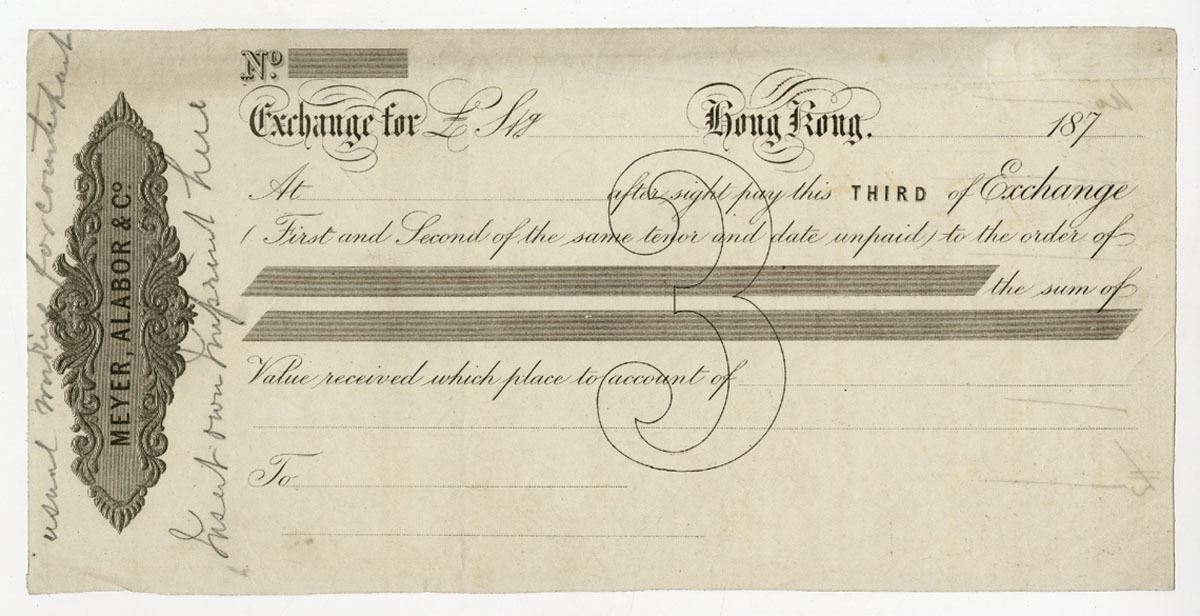 usual wording for counterpart
MEYER, ALABOR & Cº
Insert own imprint here
Nº
Exchange for £ Stg
Hong Kong. 187
At after sight pay this THIRD of Exchange
( First and Second of the same tenor and date unpaid ) to the order of
the sum of
Value received which place to account of
To
3